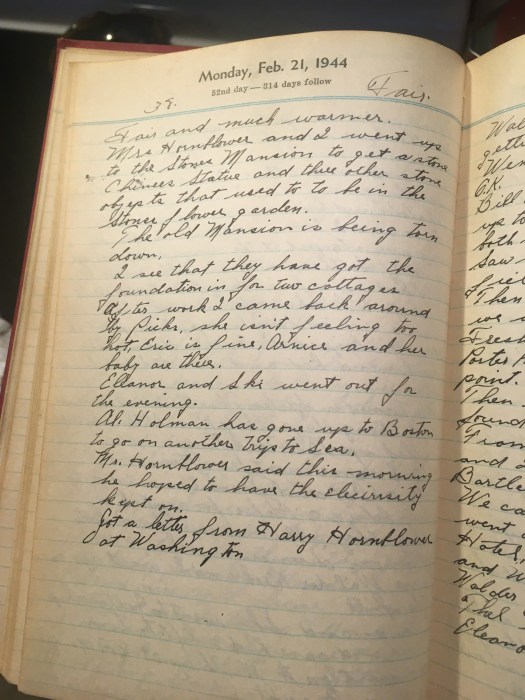 Monday, Feb. 21, 1944
52nd day — 314 days follow
38. Fair.
Fair and much warmer.
Mrs Hornblower and I went up
to the Stones Mansion to get a stone
Chinees Statue and three other stone
objects that used to to be in the
Stones flower garden.
The old Mansion is being torn
down.
I see that they have got the
foundation in for two cottages
After work I came back around
by Picks, she isn't feeling too
hot, Eric is fine, Arnice and her
baby are there.
Eleanor and Ski went out for
the evening.
Al. Holman has gone up to Boston
to go on another trip to Sea.
Mr. Hornblower said this morning
he hoped to have the elecirisity
kept on.
Got a letter from Harry Hornblower
at Washington
Wal
getti
Wen
Bill
up to
both
Saw
Then
we
Porter
point.
Then
found
From
and
Bartle
We ca
went
Hotel
and W
Walder
Eleano